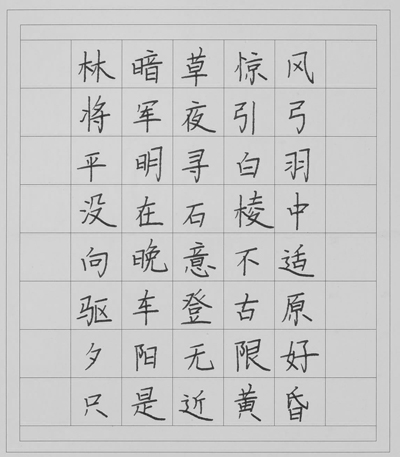 林暗草惊风
将军夜引弓
平明寻白羽
没在石棱中
向晚意不适
驱车登古原
夕阳无限好
只是近黄昏